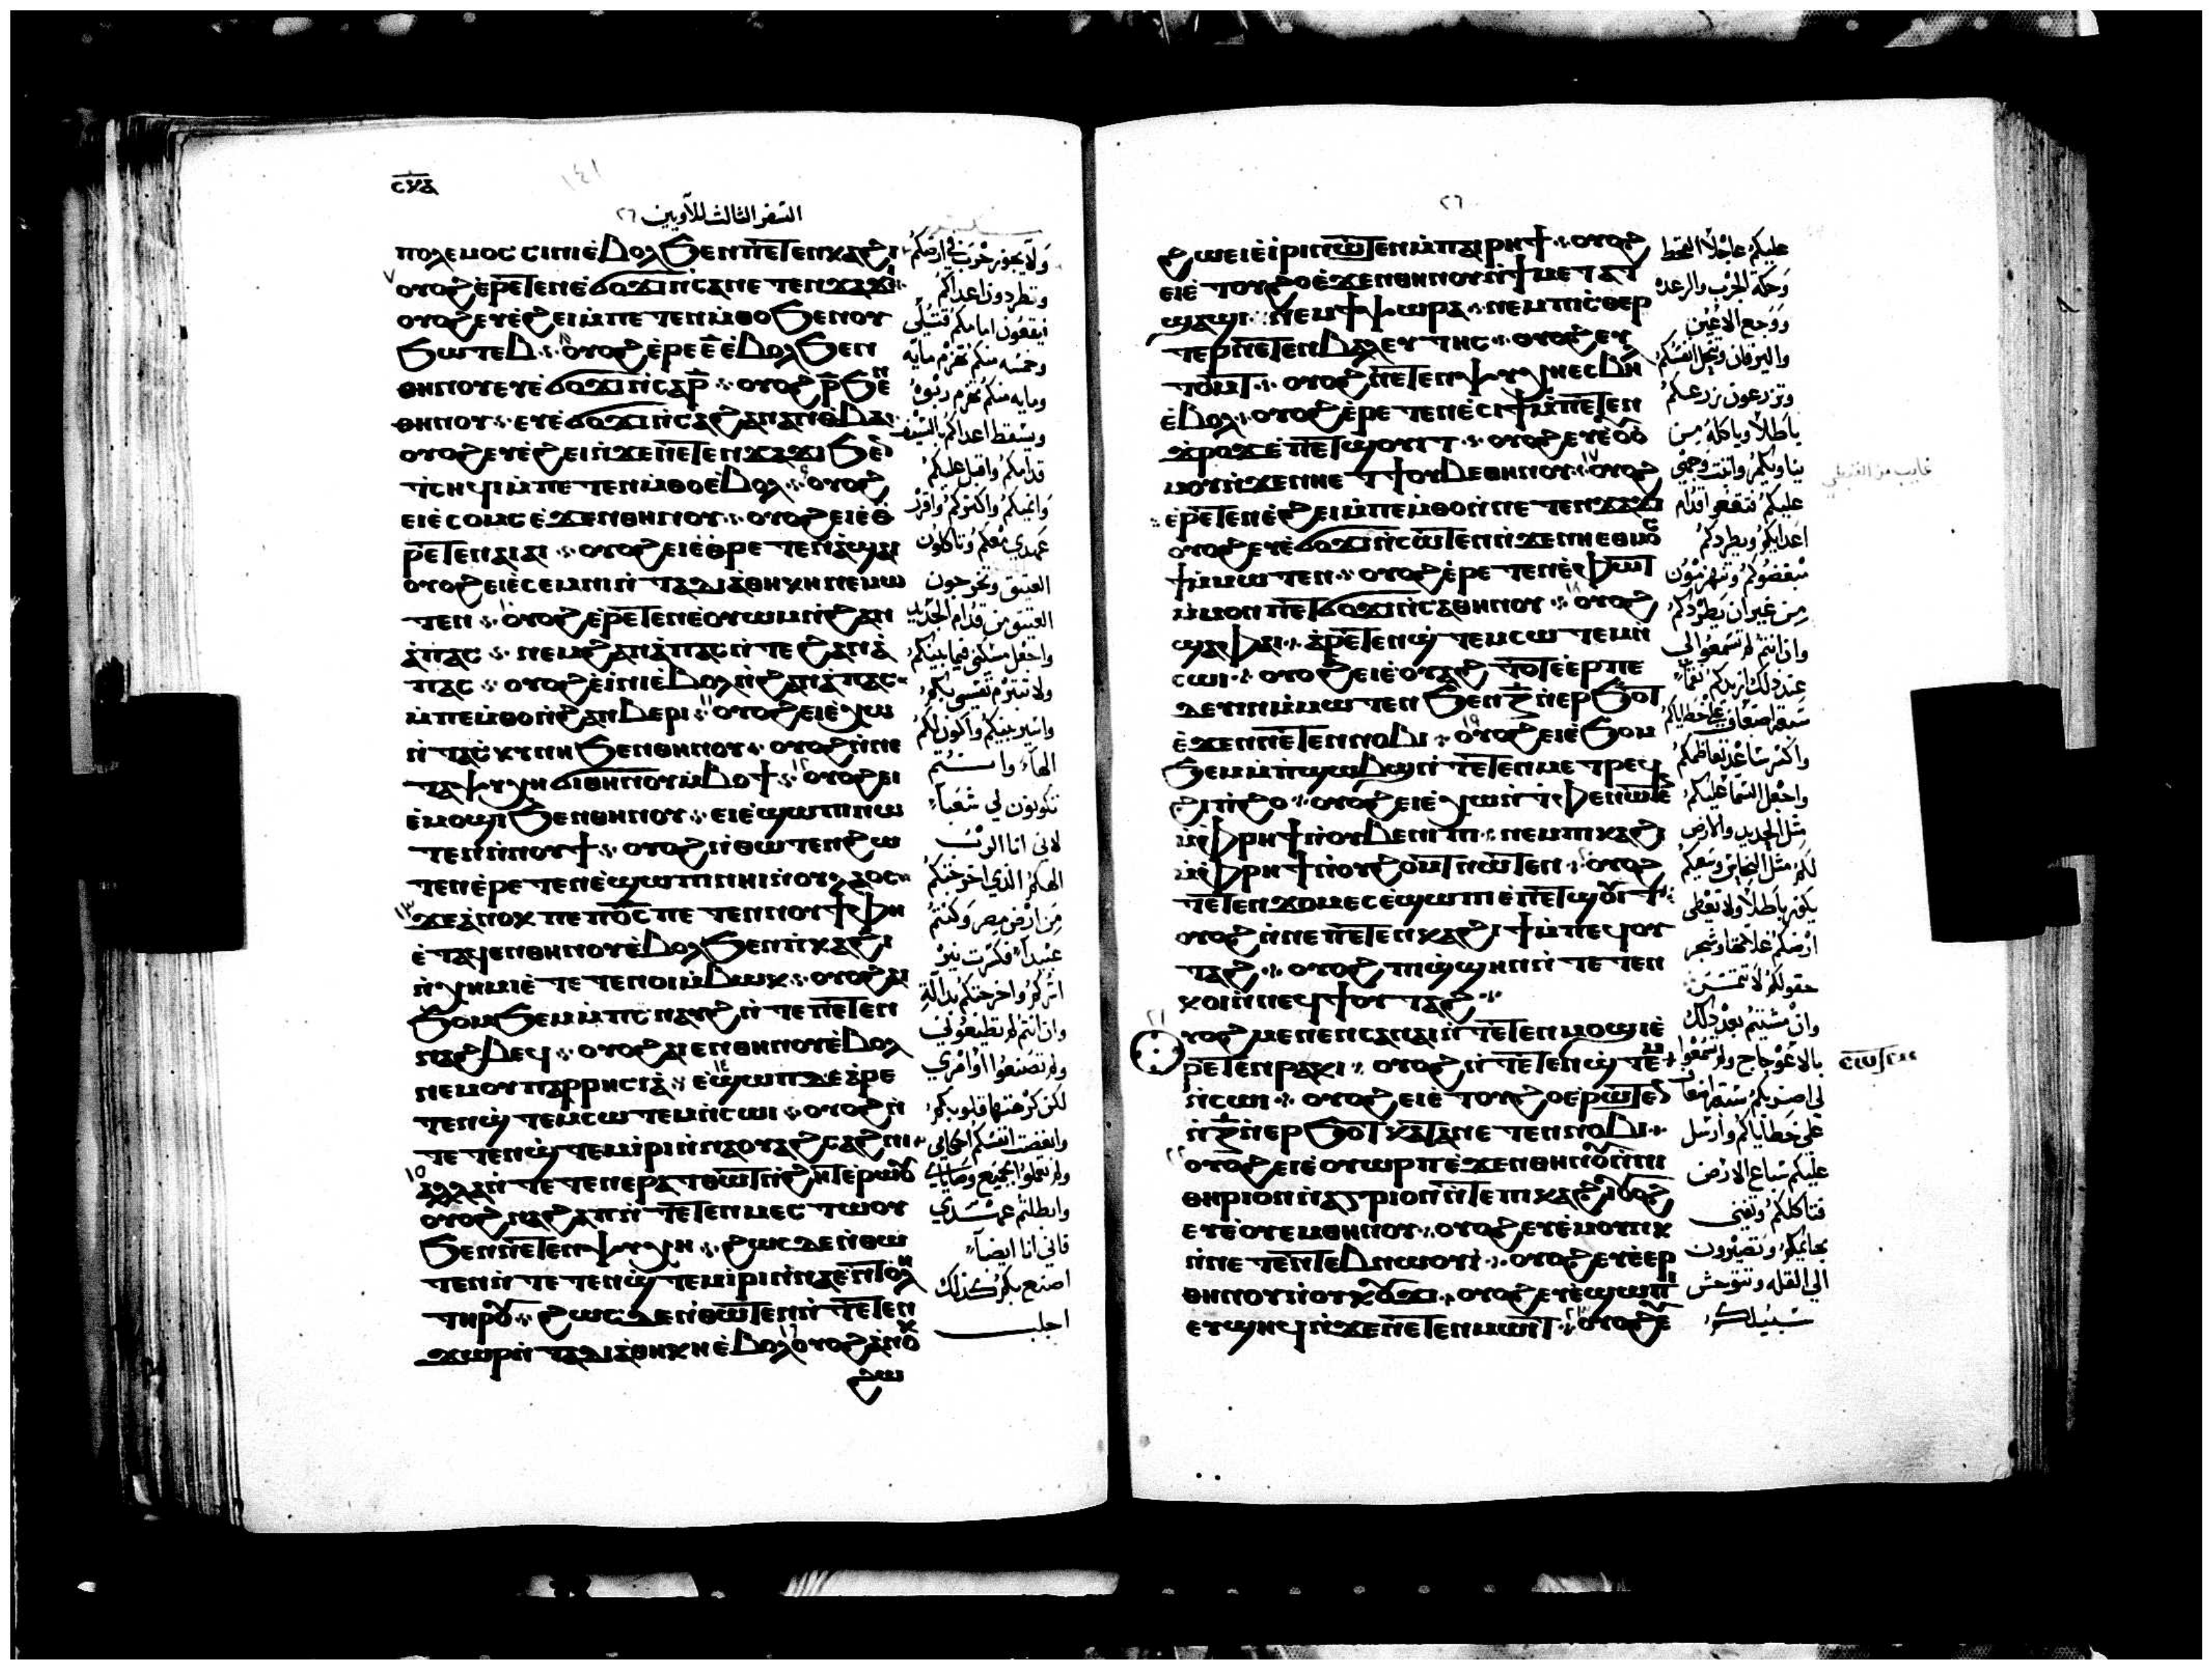 ⲥⲕⲁ
١٤١
السفر الثالث للاويين ٢٦
ⲡⲟⲗⲉⲙⲟⲥ ⲥⲓⲛⲓ ⲉ̀ⲃⲟⲗ ϧⲉⲛ ⲡⲉⲧⲉⲛⲕⲁϩⲓ
ⲟⲩⲟϩ ⲉ̀ⲣⲉⲧⲉⲛⲉ̀ϭⲟϫⲓ ⲛ̀ⲥⲁ ⲛⲉⲧⲉⲛϫⲁϫⲓ
ⲟⲩⲟϩ ⲉⲩⲉ̀ϩⲉⲓ ⲙ̀ⲡⲉⲧⲉⲛⲙ̀ⲑⲟ ϧⲉⲛ ⲟⲩ
ϧⲱⲧⲉⲃ ⁖ ⲟⲩⲟϩ ⲉ̀ⲣⲉ ⲉ̄ ⲉ̀ⲃⲟⲗ ϧⲉⲛ
ⲑⲏⲛⲟⲩ ⲉⲩⲉ̀ϭⲟϫⲓ ⲛ̀ⲥⲁ ⲣ̄ ⁖ ⲟⲩⲟϩ ⲣ̄ ϧⲉⲛ
ⲑⲏⲛⲟⲩ ⁖ ⲉⲩⲉ̀ϭⲟϫⲓ ⲛ̀ⲥⲁ ϩⲁⲛⲁⲛⲑⲃⲁ
ⲟⲩⲟϩ ⲉⲩⲉ̀ϩⲉⲓ ⲛ̀ϫⲉ ⲛⲉⲧⲉⲛϫⲁϫⲓ ϧⲉⲛ
ⲧ̀ⲥⲏϥⲓ ⲙ̀ⲡⲉⲧⲉⲛⲙ̀ⲑⲟ ⲉ̀ⲃⲟⲗ ⁖ ⲟⲩⲟϩ
ⲉⲓⲉ̀ⲥⲟⲙⲥ ⲉ̀ϫⲉⲛ ⲑⲏⲛⲟⲩ ⁖ ⲟⲩⲟϩ ⲉⲓⲉ̀ⲑ
ⲣⲉⲧⲉⲛⲁⲓⲁⲓ ⁖ ⲟⲩⲟϩ ⲉⲓⲉ̀ⲑⲣⲉⲧⲉⲛⲁ̀ϣⲁⲓ
ⲟⲩⲟϩ ⲉⲓⲉ̀ⲥⲉⲙⲛⲓ ⲛ̀ⲧⲁⲇⲓⲁ̀ⲑⲏⲕⲏ ⲛⲉⲙⲱ
ⲧⲉⲛ ⁖ ⲟⲩⲟϩ ⲉ̀ⲣⲉⲧⲉⲛⲉⲟⲩⲱⲙ ⲛ̀ϩⲁⲛ
ⲁ̀ⲡⲁⲥ ⁖ ⲛⲉⲙ ϩⲁⲛⲁ̀ⲡⲁⲥ ⲛ̀ⲧⲉ ϩⲁⲛⲁ̀
ⲡⲁⲥ ⁖ ⲟⲩⲟϩ ⲉⲓ̀ⲛⲓ ⲉ̀ⲃⲟⲗ ⲛ̀ϩⲁⲛⲁ̀ⲡⲁⲥ
ⲙ̀ⲡⲉⲙ̀ⲑⲟ ⲛ̀ϩⲁⲛⲃⲉⲣⲓ ⁖ ⲟⲩⲟϩ ⲉⲓⲉ̀ⲭⲱ
ⲛ̀ⲧⲁⲥⲕⲩⲛⲏ ϧⲉⲛ ⲑⲏⲛⲟⲩ ⁖ ⲟⲩⲟϩ ⲛ̀ⲛⲉ
ⲧⲁⲯⲩⲭⲏ ϭⲓ ⲑⲏⲛⲟⲩ ⲙ̀ⲃⲟϯ ⁖ ⲟⲩⲟϩ ⲉⲓ
ⲉ̀ⲙⲟϣⲓ ϧⲉⲛ ⲑⲏⲛⲟⲩ ⁖ ⲉⲓⲉ̀ϣⲱⲡⲓ ⲛⲱ
ⲧⲉⲛ ⲛ̀ⲛⲟⲩϯ ⁖ ⲟⲩⲟϩ ⲛ̀ⲑⲱⲧⲉⲛ ϩⲱ
ⲧⲉⲛ ⲉ̀ⲣⲉⲧⲉⲛⲉ̀ϣⲱⲡⲓ ⲛⲏⲓ ⲛ̀ⲟⲩⲗⲁⲟⲥ
ϫⲉ ⲁ̀ⲛⲟⲕ ⲡⲉ ⲡϭⲥ ⲡⲉⲧⲉⲛⲛⲟⲩϯ ⲫⲏ
ⲉ̀ⲧⲁϥⲉⲛ ⲑⲏⲛⲟⲩ ⲉ̀ⲃⲟⲗ ϧⲉⲛ ⲡ̀ⲕⲁϩⲓ
ⲛ̀ⲭⲏⲙⲓ ⲉ̀ⲧⲉⲧⲉⲛⲟⲓ ⲙ̀ⲃⲱⲕ ⁖ ⲟⲩⲟϩ ⲁⲓ
ϧⲟⲙϧⲉⲙ ⲙ̀ⲡⲓⲥⲛⲁⲩϩ ⲛ̀ⲧⲉ ⲡⲉⲧⲉⲛ
ⲛⲁϩⲃⲉϥ ⁖ ⲟⲩⲟϩ ⲁⲓⲉⲛ ⲑⲏⲛⲟⲩ ⲉ̀ⲃⲟⲗ
ⲛⲉⲙ ⲟⲩⲡⲁⲣⲣⲏⲥⲓⲁ̀ ⁖ ⲉ̀ϣⲱⲡ ⲇⲉ ⲁ̀ⲣⲉ
ⲧⲉⲛϣ̀ⲧⲉⲙⲥⲱⲧⲉⲙ ⲛ̀ⲥⲱⲓ ⁖ ⲟⲩⲟϩ ⲛ̀
ⲧⲉⲧⲉⲛϣ̀ⲧⲉⲙⲓ̀ⲣⲓ ⲛ̀ⲛⲁⲟⲩⲁϩⲥⲁϩⲛⲓ
ⲁⲗⲗⲁ ⲛ̀ⲧⲉⲧⲉⲛⲉⲣⲁⲧⲑⲱⲧ ⲛ̀ϩⲏⲧ ⲉⲣⲱⲟⲩ
ⲟⲩⲟϩ ⲛⲁϩⲁⲡ ⲛ̀ⲧⲉⲧⲉⲛⲙⲉⲥⲧⲱⲟⲩ
ϧⲉⲛ ⲛⲉⲧⲉⲛⲯⲩⲭⲏ ⁖ ϩⲱⲥ ⲇⲉ ⲛ̀ⲑⲱ
ⲧⲉⲛ ⲛ̀ⲧⲉⲧⲉⲛϣ̀ⲧⲉⲙⲓ̀ⲣⲓ ⲛ̀ⲛⲁⲉⲛⲧⲟⲗⲏ
ⲧⲏⲣⲟⲩ ⁖ ϩⲱⲥ ⲇⲉ ⲛ̀ⲑⲱⲧⲉⲛ ⲛ̀ⲧⲉⲧⲉⲛ
ϫⲱⲣ ⲛ̀ⲧⲁⲇⲓⲁ̀ⲑⲏⲕⲏ ⲉ̀ⲃⲟⲗ ⲟⲩⲟϩ ⲁⲛⲟⲕ
ϩⲱ
ولا يجوز حرب في ارضكم
وتطردون اعداكم
فيقعون امامكم قتلى
وخمسه منكم تهزم مايه
ومايه منكم تهزم ربوه
ويسقط اعداكم بالسيف
قدامكم واقبل عليكم
وانميكم واكثركم واقرر
عهدي معكم وتاكلون
العتيق وتخرجون
العتيق من قدام الجديد
واجعل مسكني فيما بينكم
ولا تتبرم نفسي بكم
واسير بينكم واكون لكم
الها وانتم
تكونون لي شعبا
لاني انا الرب
الهكم الذي اخرجتكم
من ارض مصر وكنتم
عبيدا فكسرت نير
واخرجتكم بدالة
وان انتم لم تطيعوني
ولم تصنعوا اوامري
لكن كرهتها قلوبكم
وابغضت انفسكم احكامي
ولم تعملوا بجميع وصاياي
وابطلتم عهدي
فاني انا ايضا
اصنع بكم كذلك
اجلب
٢٦
ϩⲱ ⲉⲓⲉ̀ⲓ̀ⲣⲓ ⲛⲱⲧⲉⲛ ⲙ̀ⲡⲁⲓⲣⲏϯ ⁖ ⲟⲩⲟϩ
ⲉⲓⲉ̀ⲧⲟⲩϩⲟ ⲉ̀ϫⲉⲛ ⲑⲏⲛⲟⲩ ⲛ̀ϯⲙⲉⲧⲁⲧ
ϣⲁϣⲓ ⁖ ⲛⲉⲙ ϯⲯⲱⲣⲁ ⁖ ⲛⲉⲙ ⲡⲓⲥⲑⲉⲣ
ⲧⲉⲣ ⲛⲉⲧⲉⲛⲃⲁⲗ ⲉⲩⲧⲏⲥ ⁖ ⲟⲩⲟϩ ⲉⲩ
ⲧⲟⲙⲧ ⁖ ⲟⲩⲟϩ ⲛⲉⲧⲉⲛⲯⲩⲭⲏ ⲉⲥⲃⲏⲗ
ⲉ̀ⲃⲟⲗ ⁖ ⲟⲩⲟϩ ⲉ̀ⲣⲉⲧⲉⲛⲉ̀ⲥⲓϯ ⲙ̀ⲡⲉⲧⲉⲛ
ϫ̀ⲣⲟϫ ⲉ̀ⲡⲉⲧϣⲟⲩⲓⲧ ⁖ ⲟⲩⲟϩ ⲉⲩⲉ̀ⲟⲩⲟ
ⲙⲟⲩ ⲛ̀ϫⲉ ⲛⲏⲉⲧϯ ⲟⲩⲃⲉ ⲑⲏⲛⲟⲩ ⁖ ⲟⲩⲟϩ
ⲉ̀ⲣⲉⲧⲉⲛⲉ̀ϩⲉⲓ ⲙ̀ⲡⲉⲙ̀ⲑⲟ ⲛ̀ⲛⲉⲧⲉⲛϫⲁϫⲓ
ⲟⲩⲟϩ ⲉⲩⲉ̀ϭⲟϫⲓ ⲛ̀ⲥⲱⲧⲉⲛ ⲛ̀ϫⲉ ⲛⲏⲉⲑⲙⲟⲥ
ϯ ⲙ̀ⲙⲱⲧⲉⲛ ⁖ ⲟⲩⲟϩ ⲉ̀ⲣⲉⲧⲉⲛⲉ̀ⲫⲱⲧ
ⲙ̀ⲙⲟⲛ ⲡⲉⲧϭⲟϫⲓ ⲛ̀ⲥⲁ ⲑⲏⲛⲟⲩ ⁖ ⲟⲩⲟϩ
ϣⲁ ⲫⲁⲓ ⁖ ⲁ̀ⲣⲉⲧⲉⲛϣ̀ⲧⲉⲙⲥⲱⲧⲉⲙ ⲛ̀
ⲥⲱⲓ ⁖ ⲟⲩⲟϩ ⲉⲓⲉ̀ⲟⲩⲁϩ ⲧⲟⲧ ⲉ̀ⲉⲣⲡⲉ
ⲇⲉⲩⲓⲛ ⲙ̀ⲙⲱⲧⲉⲛ ϧⲉⲛ ⲍ̄ ⲛ̀ⲉⲣϧⲟⲧ
ⲉ̀ϫⲉⲛ ⲛⲉⲧⲉⲛⲛⲟⲃⲓ ⁖ ⲟⲩⲟϩ ⲉⲓⲉ̀ϧⲟⲙ
ϧⲉⲙ ⲙ̀ⲡ̀ϣⲱϣ ⲛ̀ⲧⲉⲧⲉⲛⲙⲉⲧⲣⲉϥ
ϭⲓⲛ̀ϩⲟ ⁖ ⲟⲩⲟϩ ⲉⲓⲉ̀ⲭⲱ ⲛ̀ⲧ̀ⲫⲉ ⲛⲱⲧⲉⲛ
ⲙ̀ⲫⲣⲏϯ ⲛ̀ⲟⲩⲃⲉⲛⲓⲡⲓ ⁖ ⲛⲉⲙ ⲡⲓⲕⲁϩⲓ
ⲙ̀ⲫⲣⲏϯ ⲛ̀ⲟⲩϩⲟⲙⲧ ⲛⲱⲧⲉⲛ ⁖ ⲟⲩⲟϩ
ⲧⲉⲧⲉⲛϫⲟⲙ ⲉⲥⲉ̀ϣⲱⲡⲓ ⲉ̀ⲡⲉⲧϣⲟⲩⲓⲧ
ⲟⲩⲟϩ ⲛ̀ⲛⲉ ⲡⲉⲧⲉⲛⲕⲁϩⲓ ϯ ⲙ̀ⲡⲉϥⲟⲩ
ⲧⲁϩ ⁖ ⲟⲩⲟϩ ⲡⲓϣ̀ϣⲏⲛ ⲛ̀ⲧⲉ ⲧⲉⲛ
ⲕⲟⲓ ⲛ̀ⲛⲉϥϯ ⲟⲩⲧⲁϩ ⁖
ⲟⲩⲟϩ ⲙⲉⲛⲉⲛⲥⲁ ⲛⲁⲓ ⲛ̀ⲧⲉⲧⲉⲛⲙⲟϣⲓ ⲉ̀
ⲣⲉⲧⲉⲛⲣⲁⲕⲓ ⁖ ⲟⲩⲟϩ ⲛ̀ⲧⲉⲧⲉⲛϣ̀ⲧⲉⲙ
ⲛ̀ⲥⲱⲓ ⁖ ⲟⲩⲟϩ ⲉⲓⲉ̀ⲧⲟⲩϩⲟ ⲉⲣⲱⲧⲉⲛ
ⲛ̀ⲍ̄ ⲛ̀ⲉⲣϧⲟⲧ ⲕⲁⲧⲁ ⲛⲉⲧⲉⲛⲛⲟⲃⲓ ⁖
ⲟⲩⲟϩ ⲉⲓⲉ̀ⲟⲩⲱⲣⲡ ⲉ̀ϫⲉⲛ ⲑⲏⲛⲟⲩ ⲛ̀ⲛⲓ
ⲑⲏⲣⲓⲟⲛ ⲛ̀ⲁⲅⲣⲓⲟⲛ ⲛ̀ⲧⲉ ⲡⲓⲕⲁϩⲓ ⲟⲩⲟϩ
ⲉⲩⲉ̀ⲟⲩⲉⲙ ⲑⲏⲛⲟⲩ ⁖ ⲟⲩⲟϩ ⲉⲩⲉ̀ⲙⲟⲩⲛⲕ
ⲛ̀ⲛⲉⲧⲉⲛⲧⲉⲃⲛⲱⲟⲩⲓ̀ ⁖ ⲟⲩⲟϩ ⲉⲩⲉ̀ⲉⲣ
ⲑⲏⲛⲟⲩ ⲛ̀ⲟⲩⲕⲟⲩϫⲓ ⁖ ⲟⲩⲟϩ ⲉⲩⲉ̀ϣⲱⲡⲓ
ⲉⲩϣⲏϥ ⲛ̀ϫⲉ ⲛⲉⲧⲉⲛⲙⲱⲓⲧ ⁖ ⲟⲩⲟϩ ⲉ
ⲥⲱⲧⲉⲙ
عليكم عاجلا القحط
وحكه الجرب والرعده
ووجع الاعين
واليرقان وتنحل انفسكم
وتزرعون زرعكم
باطلا وياكله من
يناوبكم وانت وجهي
عليكم فتقعوا قدام
اعدايكم ويطردكم
مبغضوكم وتهزمون
من غير ان يطردكم
وان انتم لم تسمعوا لي
عند ذلك ازيدكم نقما
سبعة اضعاف على خطاياكم
واكسر شامخ تعاظمكم
واجعل السما عليكم
مثل الحديد والارض
لكم مثل النحاس وتعبكم
يكون باطلا ولا تعطى
ارضكم غلاتها وشجر
حقولكم لا تثمر
وان مشيتم بعد ذلك
بالاعوجاج ولم تسمعوا
لي اضربكم سبعة اضعاف
على خطاياكم وارسل
عليكم سباع الارض
فتاكلكم وتفني
بهايمكم وتصيرون
الى القله وتتوحش
سبيلكم
غايب من القبطي